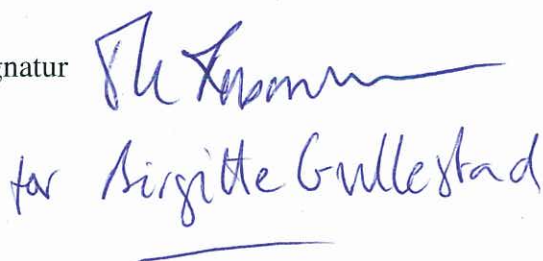 gnatur
for Birgitte Gullestad